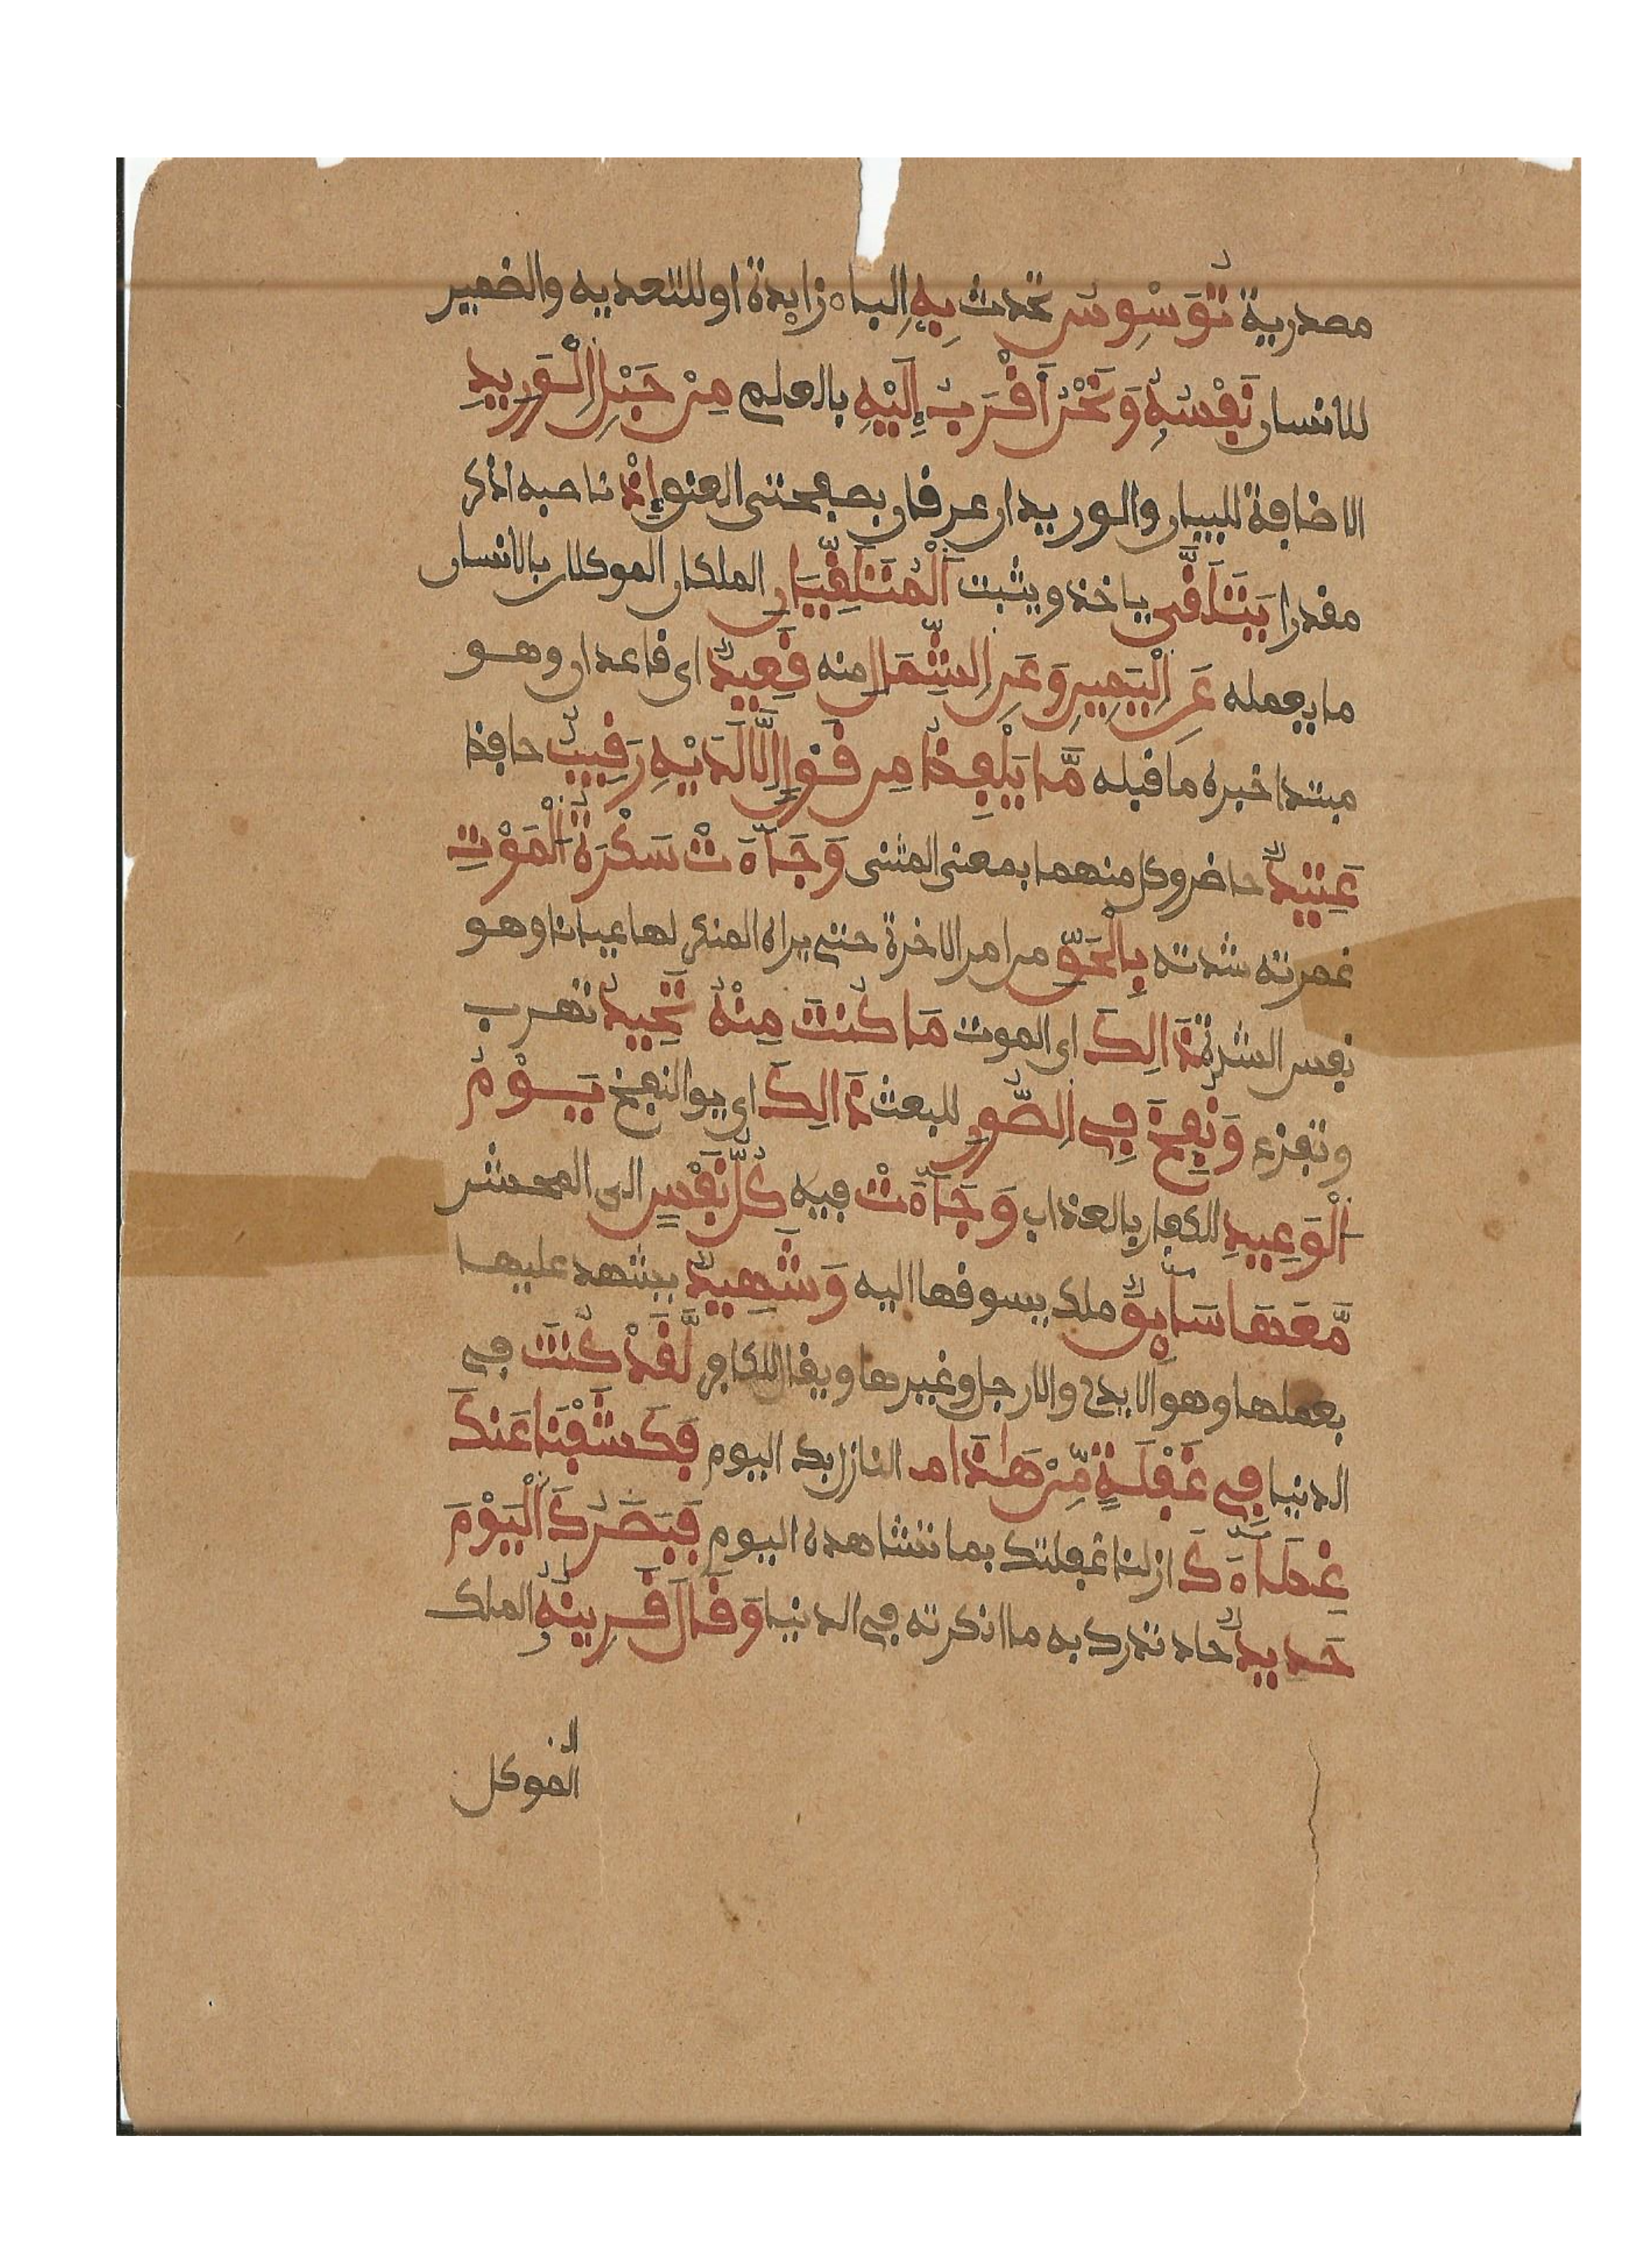 مصدرية تُوَسْوِسُ تحدث بِهِ الباء زايدة او للتعديه والضمير
للانسان نَفْسُهُ وَنَحْنُ أَقْرَبُ إِلَيْهِ بالعلم مِنْ حَبْلِ الْوَرِيدِ
الاضافة للبيان والوريدان عرفان بصفحتى العنق إِذْ ناصبه اذكر
مقدرا يَتَلَقَّى ياخذ ويثبت الْمُتَلَقِّيَانِ الملكان الموكلان بالانسان
ما يعمله عَنِ الْيَمِينِ وَعَنِ الشِّمَالِ منه قَعِيدٌ اى قاعدان وهو
مبتدا خبره ما قبله مَّا يَلْفِظُ مِن قَوْلٍ إِلَّا لَدَيْهِ رَقِيبٌ حافظ
عَتِيدٌ حاضر وكل منهما بمعنى المثنى وَجَآءَتْ سَكْرَةُ الْمَوْتِ
غمرته شدته بِالْحَقِّ من امر الاخرة حتى يراه المنكر لها عيانا وهو
نفس الشدة ذَالِكَ اى الموت مَا كُنتَ مِنْهُ تَحِيدُ تهرب
وتفزع وَنُفِخَ فِى الصُّورِ للبعث ذَالِكَ اى يوا النفخ يَوْمُ
الْوَعِيدِ للكفار بالعذاب وَجَآءَتْ فيه كُلُّ نَفْسٍ الى المحشر
مَّعَهَا سَآيِقٌ ملك يسوقها اليه وَشَهِيدٌ يشهد عليها
بعملها وهو الايدى والارجل وغيرها ويقال للكافر لَّقَدْ كُنتَ فى
الدنيا فِى غَفْلَةٍ مِّنْ هَاذَا النازل بك اليوم فَكَشَفْنَا عَنكَ
غِطَآءَكَ ازلنا غفلتك بما تشاهده اليوم فَبَصَرُكَ الْيَوْمَ
حَدِيدٌ حاد تدرك به ما انكرته فى الدنيا وَقَالَ قَرِينُهُ الملك
الموكل